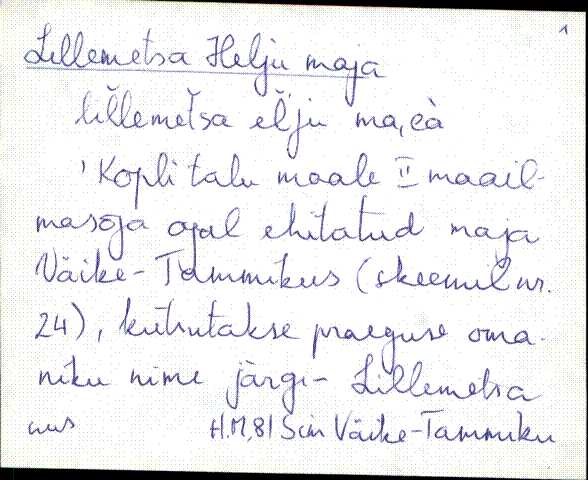 1
Lillemetsa Helju maja
lil̆lemet̆sa el̆ju ma,eà
'Kopli talu maale II maail-
masõja ajal ehitatud maja
Väike-Tammikus (skeemil nr.
24), kutsutakse praeguse oma-
niku nime järgi - Lillemetsa
H.M,81 Sim Väike-Tammiku